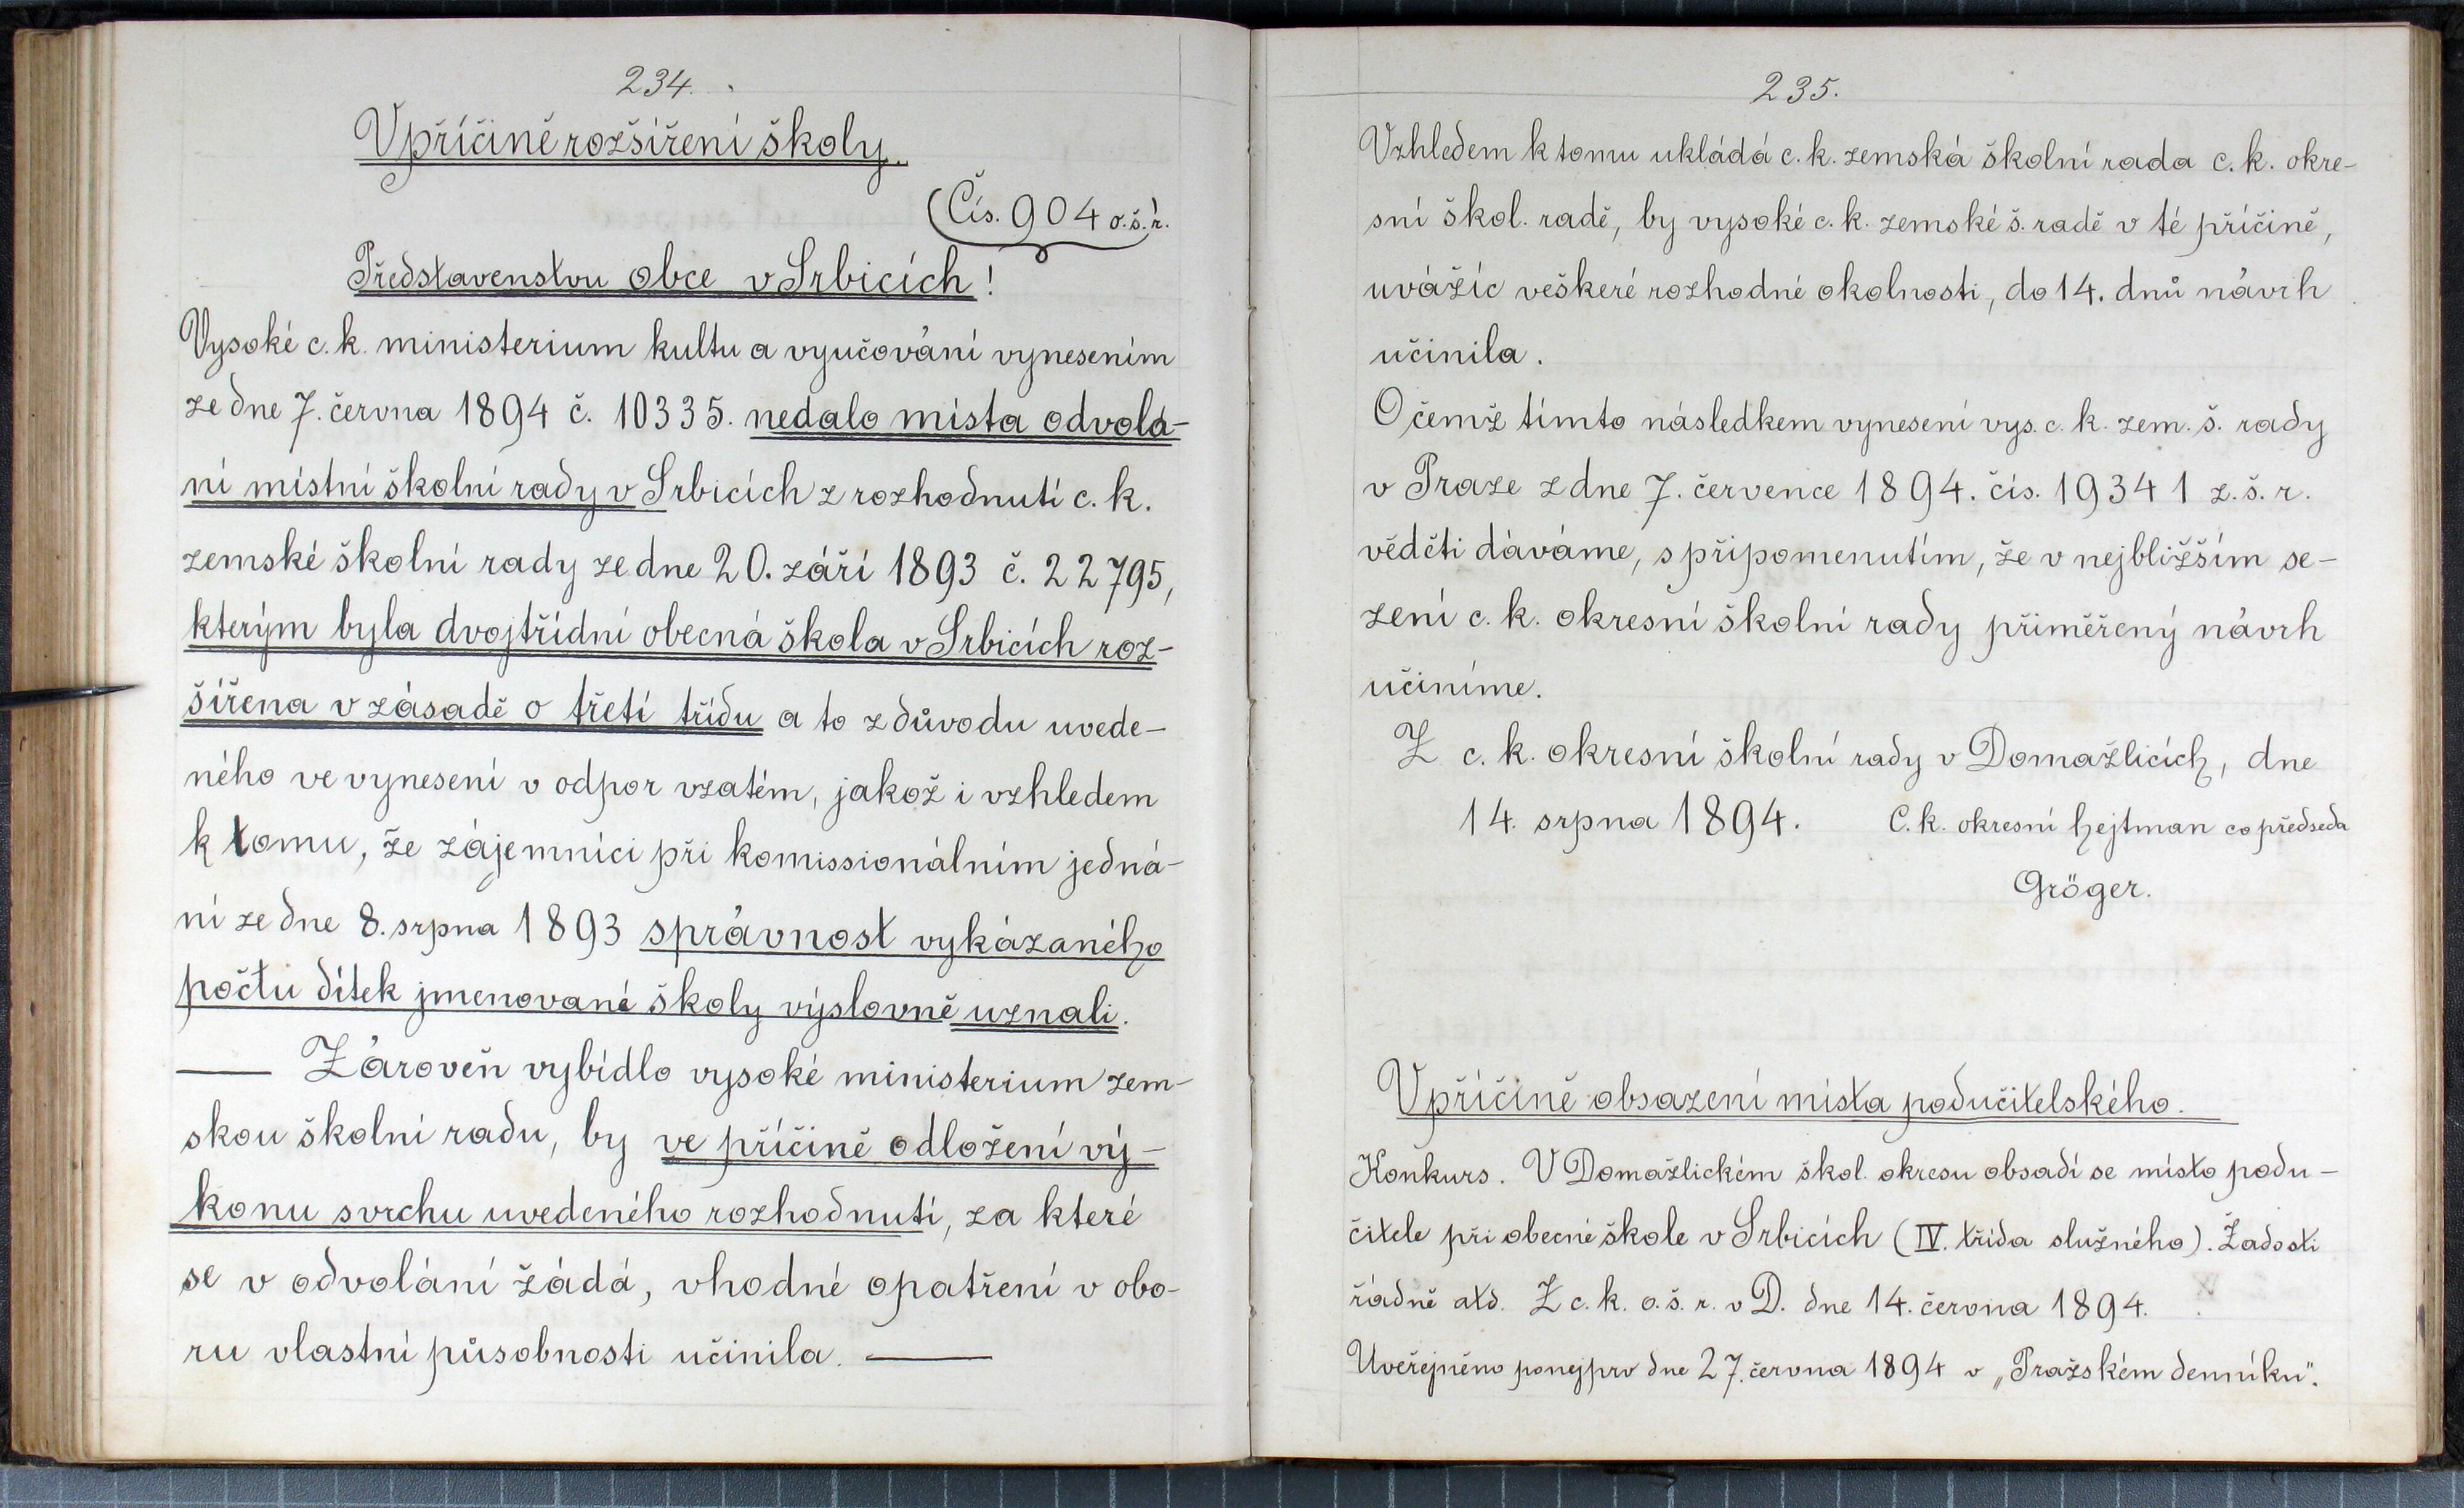 234.
V příčině rozšíření školy.
(Čís. 904 o.š.r.
Představenstvu obce v Srbicích!
Vysoké c. k. ministerium kultu a vyučování vynesením
ze dne 7. června 1894 č. 10335. nedalo místa odvolá-
ní místní školní rady v Srbicích z rozhodnutí c. k.
zemské školní rady ze dne 20. září 1893 č. 22795,
kterým byla dvojtřídní obecná škola v Srbicích roz-
šířena v zásadě o třetí třídu a to z důvodu uvede-
ného ve vynesení v odpor vzatém, jakož i vzhledem
k tomu, že zájemníci při komissionálním jedná-
ní ze dne 8. srpna 1893 správnost vykázaného
počtu dítek jmenované školy výslovně uznali.
— Zároveň vybídlo vysoké ministerium zem-
skou školní radu, by ve příčině odložení vý-
konu svrchu uvedeného rozhodnutí, za které
se v odvolání žádá, vhodné opatření v obo-
ru vlastní působnosti učinila. —
235.
Vzhledem k tomu ukládá c. k. zemská školní rada c. k. okre-
sní škol. radě, by vysoké c. k. zemské š. radě v té příčině,
uvážíc veškeré rozhodné okolnosti, do 14. dnů návrh
učinila.
O čemž tímto následkem vynesení vys. c. k. zem. š. rady
v Praze z dne 7. července 1894. čís. 19341 z. š. r.
věděti dáváme, s připomenutím, že v nejbližším se-
zení c. k. okresní školní rady přiměřený návrh
učiníme.
Z c. k. okresní školní rady v Domažlicích, dne
14. srpna 1894. C. k. okresní hejtman co předseda
Gröger.
V příčině obsazení místa podučitelského.
Konkurs. V Domažlickém škol. okresu obsadí se místo podu-
čitele při obecné škole v Srbicích (IV. třída služného). Žádosti
řádně atd. Z c. k. o. š. r. v D. dne 14. června 1894.
Uveřejněno ponejprv dne 27. června 1894 v „Pražském denníku".